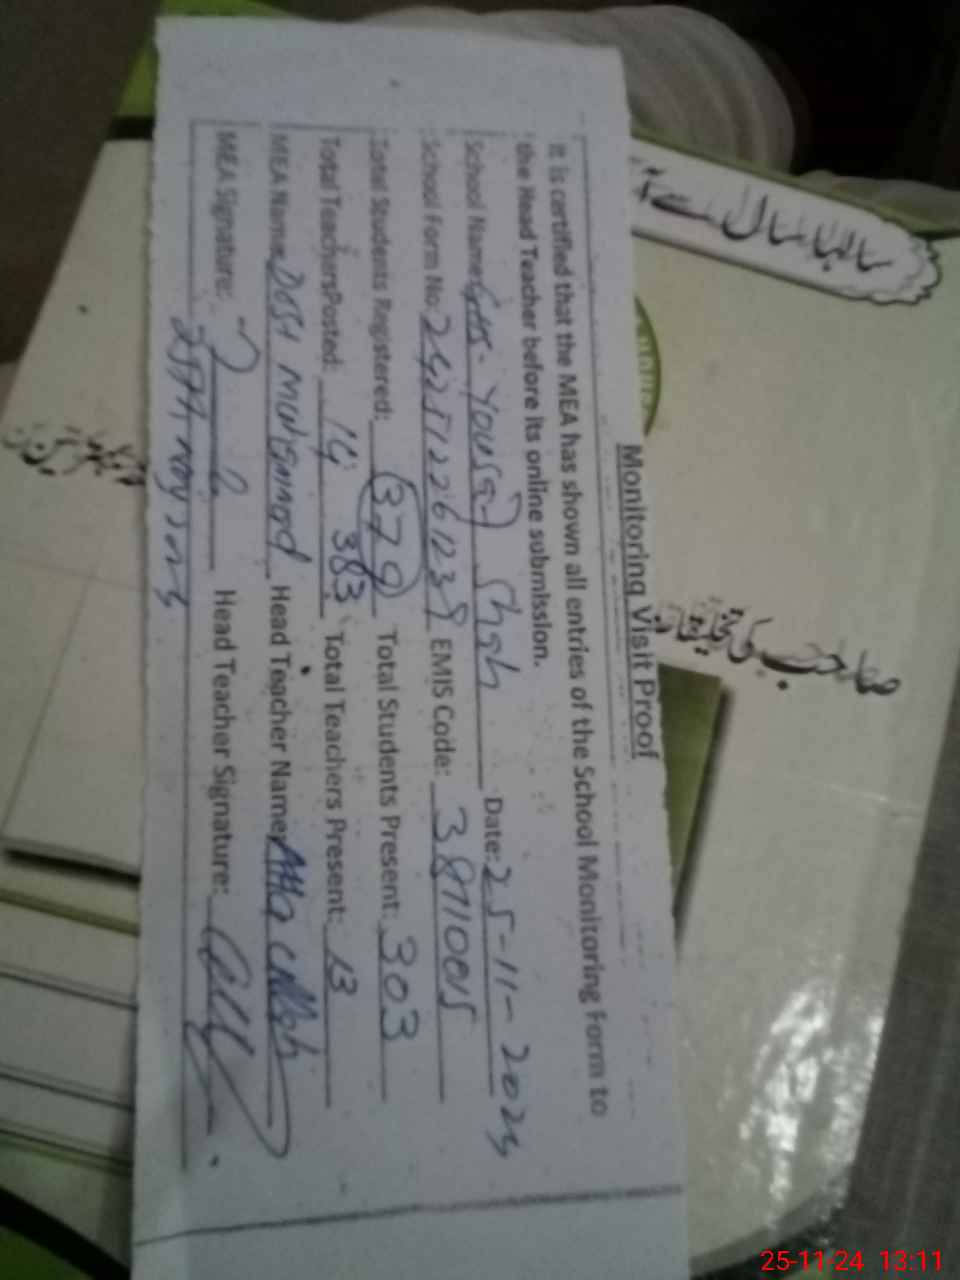 Monitoring Visit Proof
It is certified that the MEA has shown all entries of the School Monitoring Form to
the Head Teacher before its online submission.
School Name: GHS. Yousaf Shah Date: 25-11-2024
School Form No: EMIS Code:
Total Students Registered: 379 Total Students Present: 303
Total Teachers Posted: 14 383 Total Teachers Present: 13
MEA Name: Dost Muhammad Head Teacher Name: Atta Ullah
MEA Signature: Head Teacher Signature:
سالہا سال سے
صاحب کی تخلیقات
25-11-24 13:11